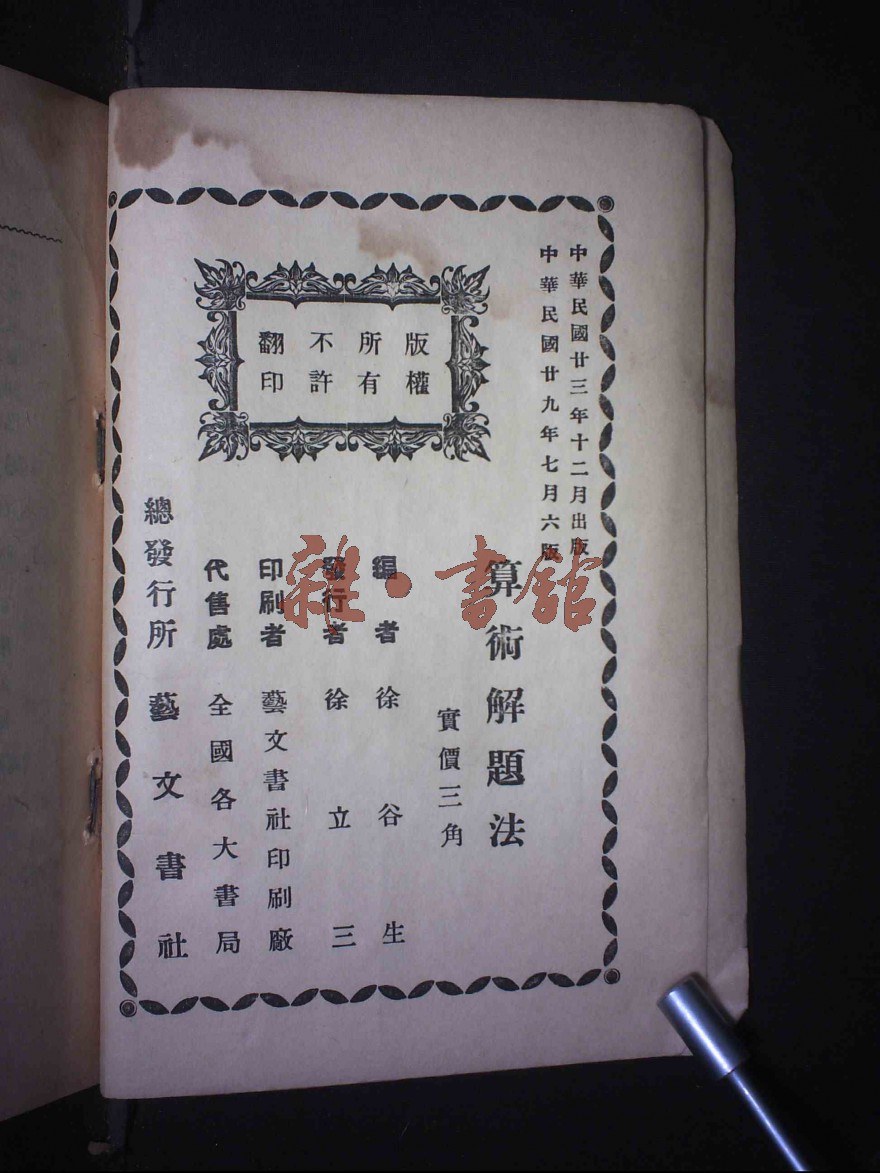 中華民國廿三年十二月出版
中華民國廿九年七月六版
版權
所有
不許
翻印
算術解題法
實價三角
編者 徐谷生
發行者 徐立三
印刷者 藝文書社印刷廠
代售處 全國各大書局
總發行所 藝文書社
雜·書館